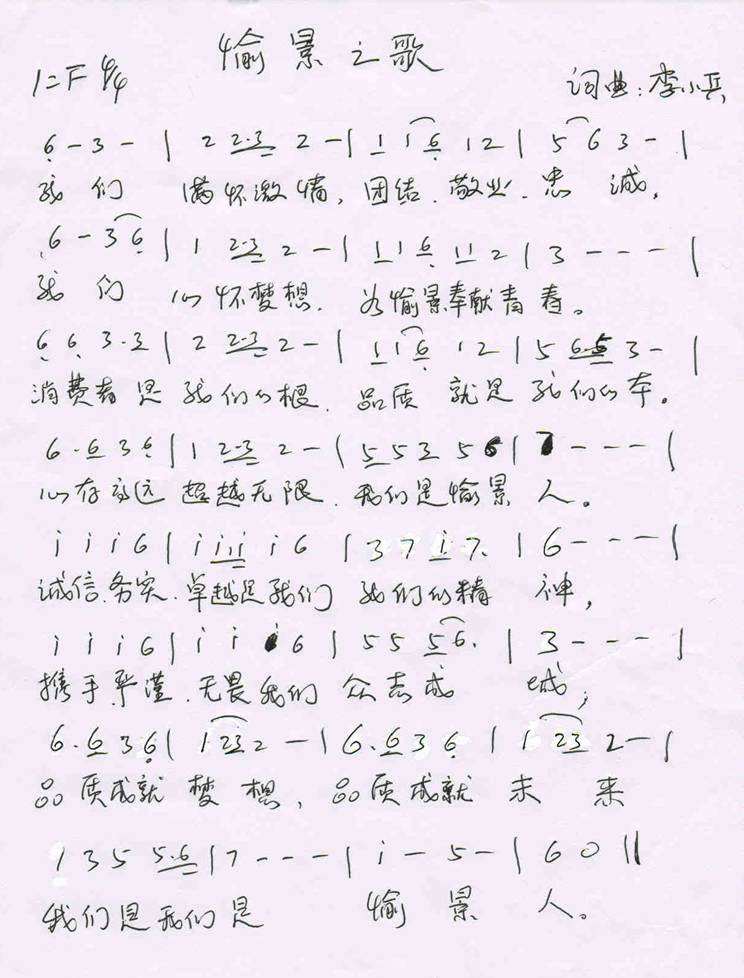 愉景之歌
1=F 4/4
词曲:李小兵
6 - 3 - | 2 2 2·3 2 - | 1 1 6 1 2 | 5 6 3 - |
我们 满怀激情, 团结.敬业.忠诚,
6 - 3 6 | 1 2·3 2 - | 1 1 6 1 1 2 | 3 - - - |
我们 心怀梦想. 为愉景奉献青春。
6 6 3·3 | 2 2·3 2 - | 1 1 6 1 2 | 5 6·5 3 - |
消费者是我们的根. 品质就是我们的本。
6·6 3 6 | 1 2·3 2 - | 5 5 3 5 6 | 7 - - - |
心存永远超越无限.我们是愉景人。
i i i 6 | i i i i i 6 | 3 7 i 7. | 6 - - - |
诚信.务实.卓越是我们 我们的精神,
i i i 6 | i i i 6 | 5 5 5 6. | 3 - - - |
携手.严谨.无畏我们 众志成城;
6·6 3 6 | 1 2 3 2 - | 6·6 3 6 | 1 2 3 2 - |
品质成就梦想, 品质成就未来
1 3 5 5 5·6 | 7 - - - | i - 5 - | 6 0 ||
我们是我们是 愉景人。